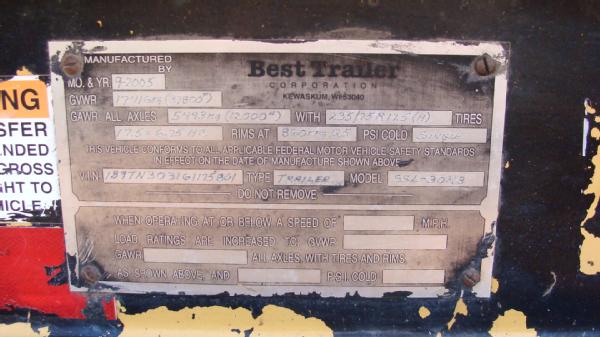 NG
SFER
ENDED
GROSS
GHT TO
HICLE.
MANUFACTURED
BY
Best Trailer
CORPORATION
KEWASKUM, WI 53040
MO. & YR. 7-2005
GVWR
GAWR ALL AXLES WITH TIRES
RIMS AT PSI COLD SINGLE
THIS VEHICLE CONFORMS TO ALL APPLICABLE FEDERAL MOTOR VEHICLE SAFETY STANDARDS
IN EFFECT ON THE DATE OF MANUFACTURE SHOWN ABOVE
V.I.N. TYPE TRAILER MODEL
DO NOT REMOVE
WHEN OPERATING AT OR BELOW A SPEED OF M.P.H.
LOAD RATINGS ARE INCREASED TO GVWR
GAWR ALL AXLES, WITH TIRES AND RIMS
AS SHOWN ABOVE, AND P.S.I. COLD